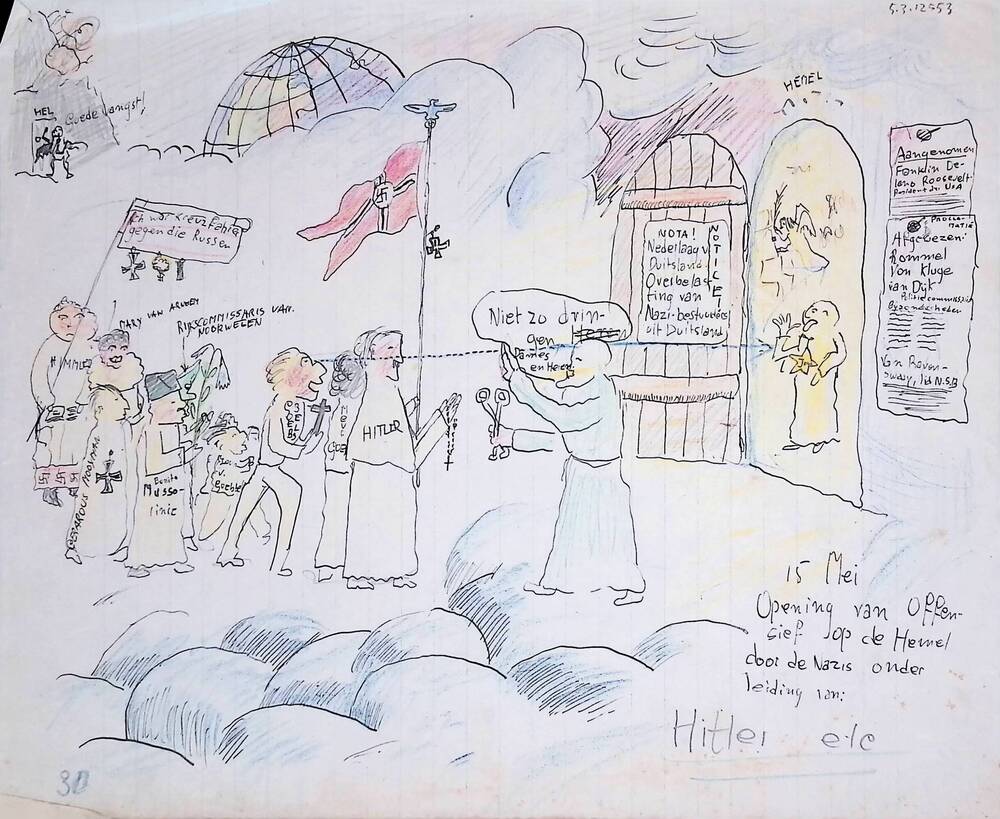 5.3.12553
HEL
Goede vangst!
HEMEL
Ich war Kreuzfahrer
gegen die Russen
MARY VAN
RIJKSCOMMISSARIS VAN
NOORWEGEN
HIMMLER
Benito
Musso-
linie
HITLER
Niet zo drin-
gen
Dames
en Heren
NOTA!
Nederlaag v.
Duitsland.
Overbelas-
ting van
Nazi-bestuurders
uit Duitsland
NOTICE!
Aangenomen
Franklin De-
lano Roosevelt
President der USA
PROCLA-
MATIE
Afgelezen:
Rommel
Von Kluge
van Dijk
Politiecommissaris
Byzonderheden
Van Raven-
sway, lid N.S.B
15 Mei
Opening van Offen-
sief op de Hemel
door de Nazis onder
leiding van:
Hitler etc
30